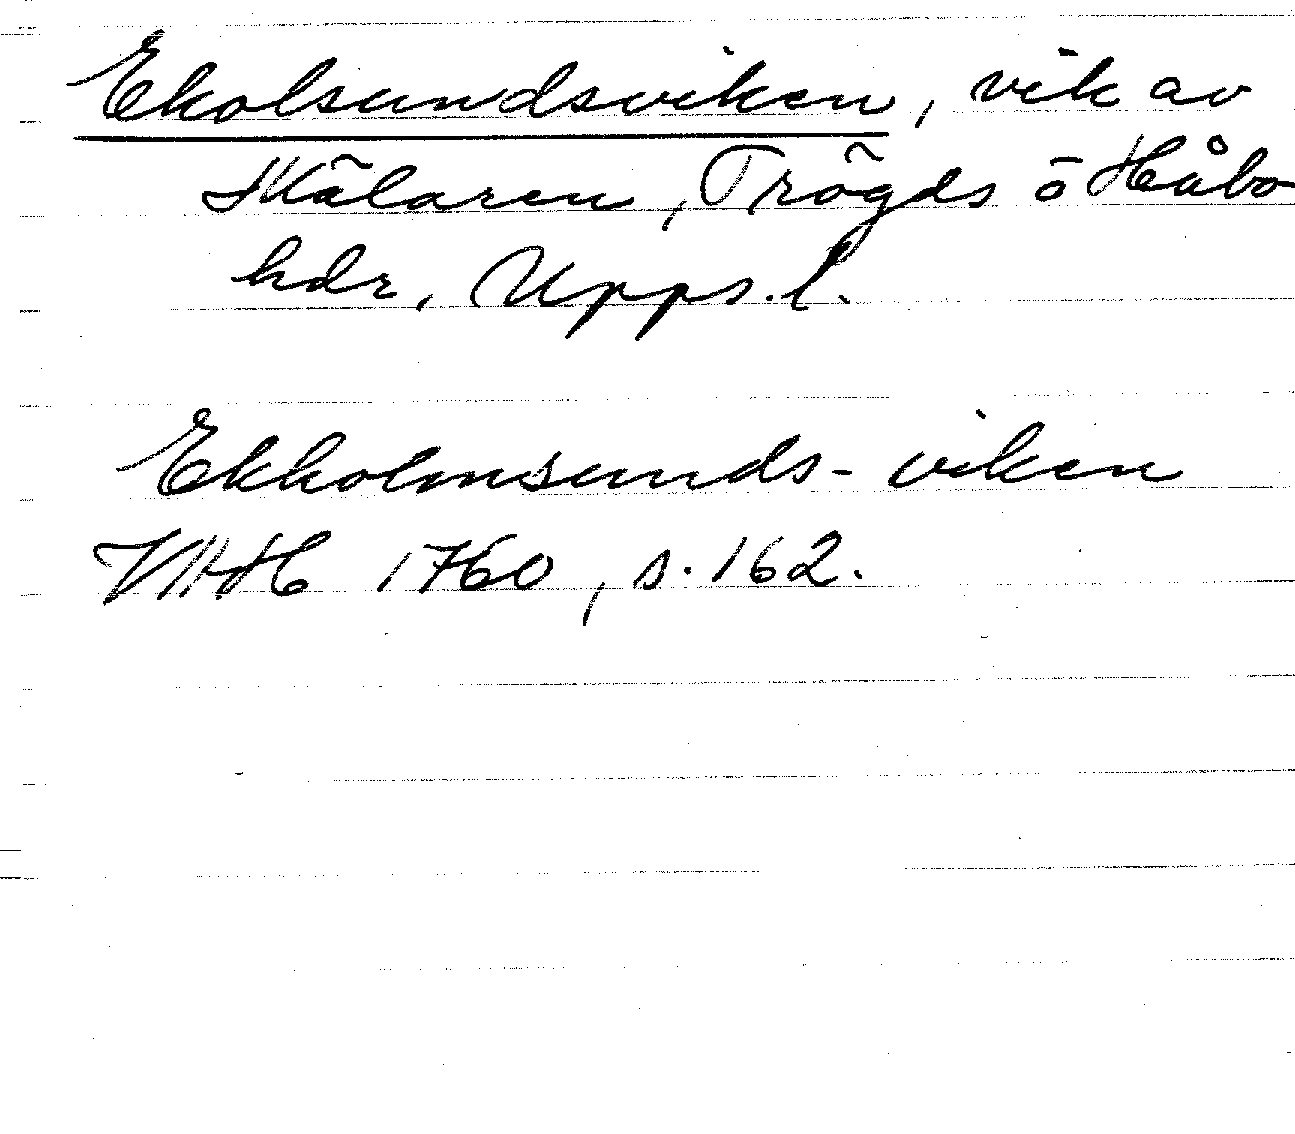 Ekolsundsviken, vik av
Mälaren, Trögds o Håbo
hdr, Upps. l.
Ekholmsunds-viken
VAH 1760, s. 162.